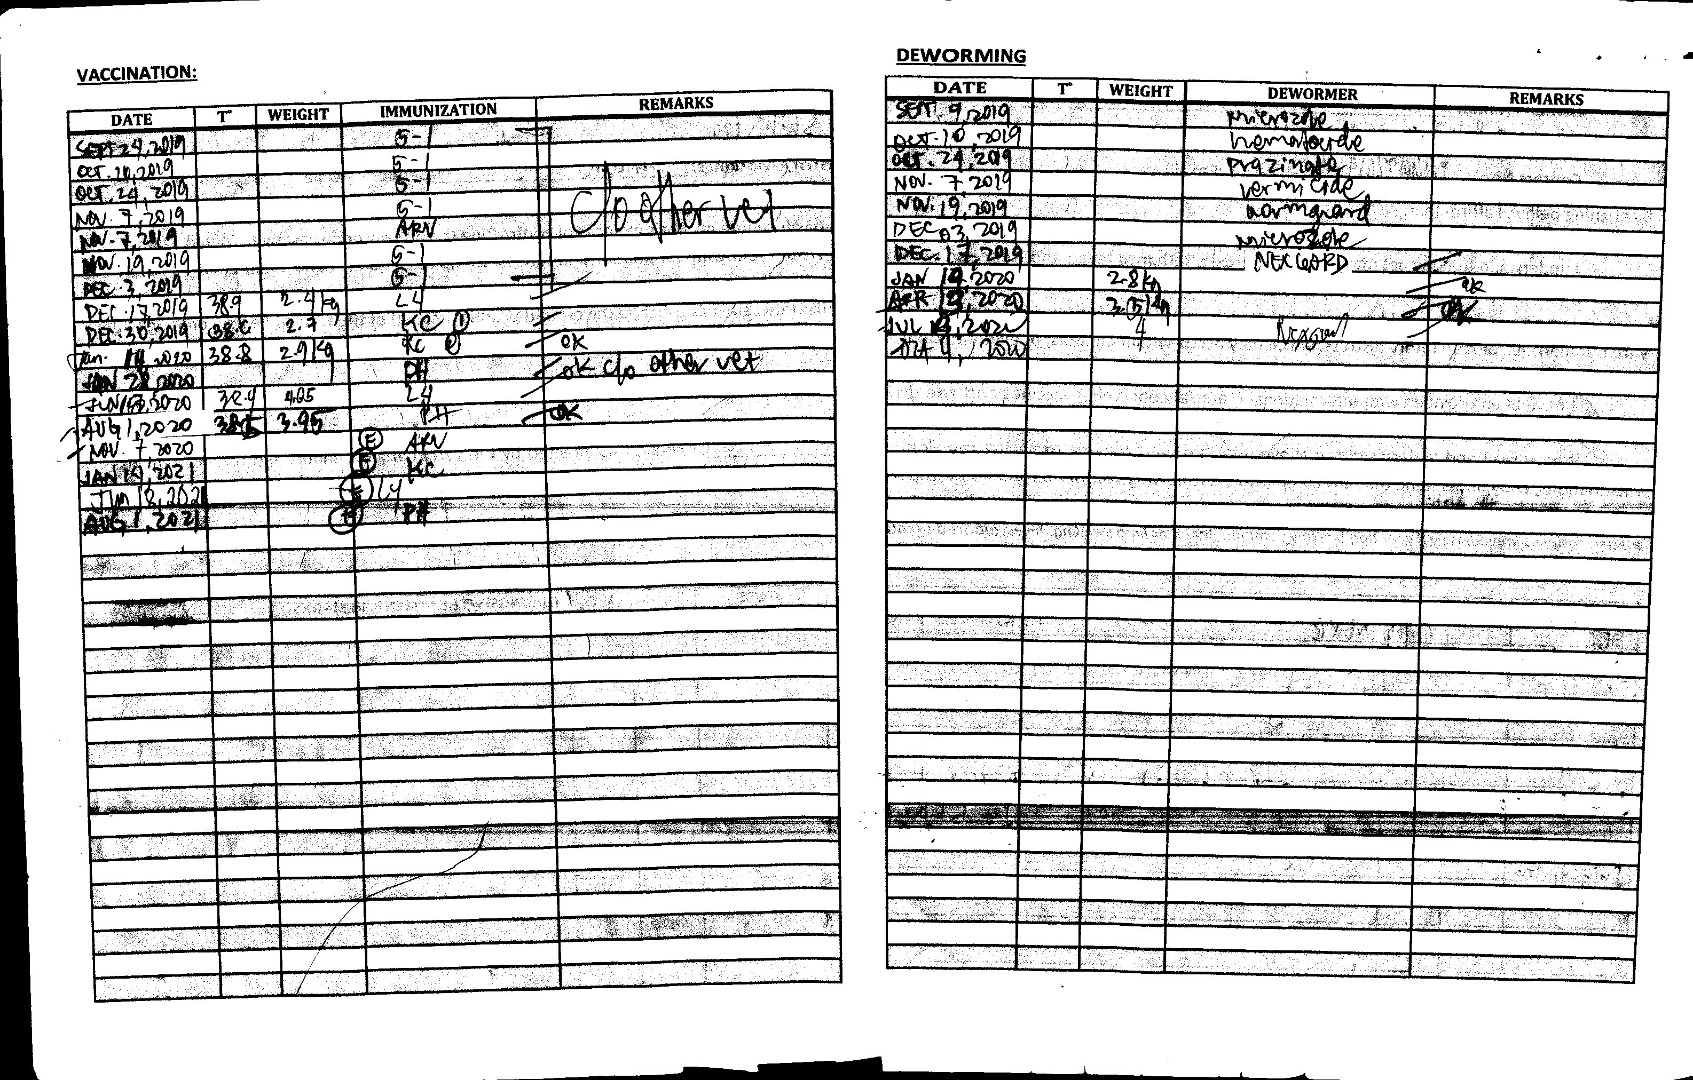 VACCINATION:
DATE T° WEIGHT IMMUNIZATION REMARKS
SEPT 24, 2019 5-1
OCT. 10, 2019 5-1
OCT. 24, 2019 5-1
NOV. 7, 2019 5-1
NOV. 7, 2019 ARV
c/o other vet
NOV. 19, 2019 5-1
DEC. 3, 2019 5-1
DEC 17, 2019 38.9 2.4 kg L4
DEC. 30, 2019 38.6 2.7 KC 1
Jan. 2020 38.8 2.9 kg KC 2 OK
JAN 28, 2020 PH OK c/o other vet
JUN 2020 38.4 4.05 L4
AUG 1, 2020 38.5 3.95 PH OK
NOV. 7, 2020 E ARV
JAN 2021 E KC
Jun 18, 2021 E L4
AUG 1, 2021 PH
DEWORMING
DATE T° WEIGHT DEWORMER REMARKS
SEPT. 9, 2019 microzole
OCT. 10, 2019 nematocide
OCT. 24, 2019
NOV. 7 2019 vermicide
NOV. 19, 2019 wormguard
DEC 03, 2019 microzole
DEC. 17, 2019 NEXGARD
JAN 2020 2.8 kg OK
APR 2020 kg OK
JUL 2020 4